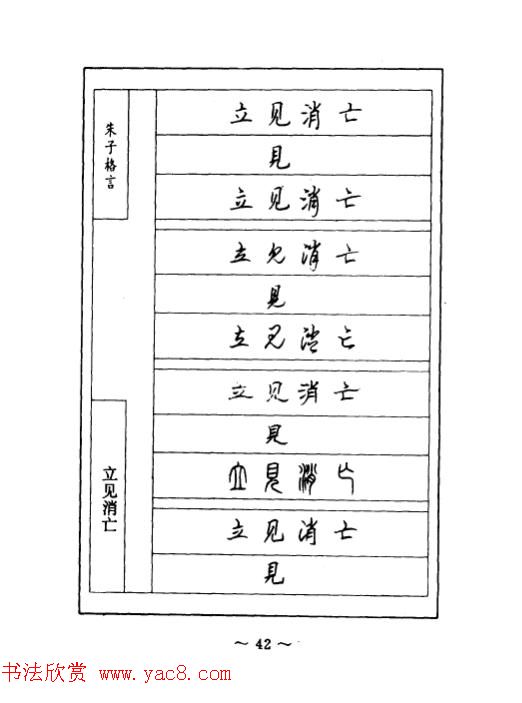 朱子格言
立见消亡
立见消亡
見
立见消亡
立见消亡
見
立见消亡
立见消亡
見
立見消亡
立见消亡
見
～ 42 ～
书法欣赏 www.yac8.com